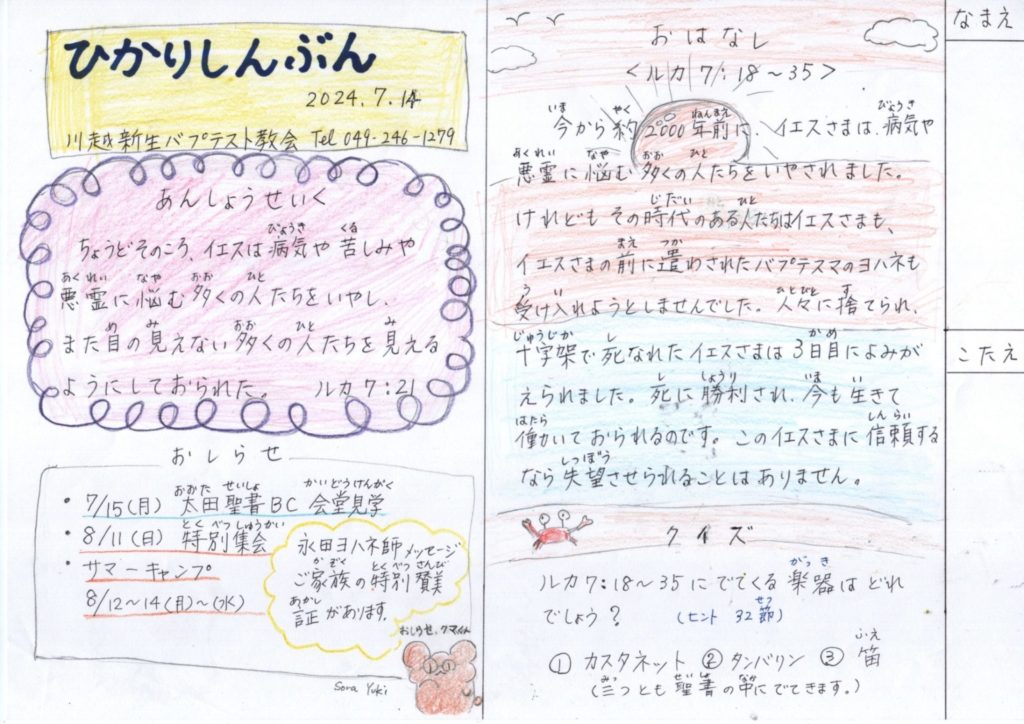 ひかりしんぶん
2024.7.14
川越新生バプテスト教会 Tel 049-246-1279
あんしょうせいく
ちょうどそのころ、イエスは病気や苦しみや
悪霊に悩む多くの人たちをいやし、
また目の見えない多くの人たちを見える
ようにしておられた。 ルカ7:21
おしらせ
・7/15(月) 太田聖書BC 会堂見学
・8/11(日) 特別集会
・サマーキャンプ
8/12~14(月)~(水)
永田ヨハネ師メッセージ
ご家族の特別賛美
証があります。
おしらせ、クマくん
Sora Yuki
おはなし
<ルカ7:18~35>
今から約2000年前に、イエスさまは、病気や
悪霊に悩む多くの人たちをいやされました。
けれどもその時代のある人たちはイエスさまも、
イエスさまの前に遣わされたバプテスマのヨハネも
受け入れようとしませんでした。人々に捨てられ、
十字架で死なれたイエスさまは3日目によみが
えられました。死に勝利され、今も生きて
働いておられるのです。このイエスさまに信頼する
なら失望させられることはありません。
クイズ
ルカ7:18~35にでてくる楽器はどれ
でしょう? (ヒント 32節)
① カスタネット ② タンバリン ③ 笛
(三つとも聖書の中にでてきます。)
なまえ
こたえ